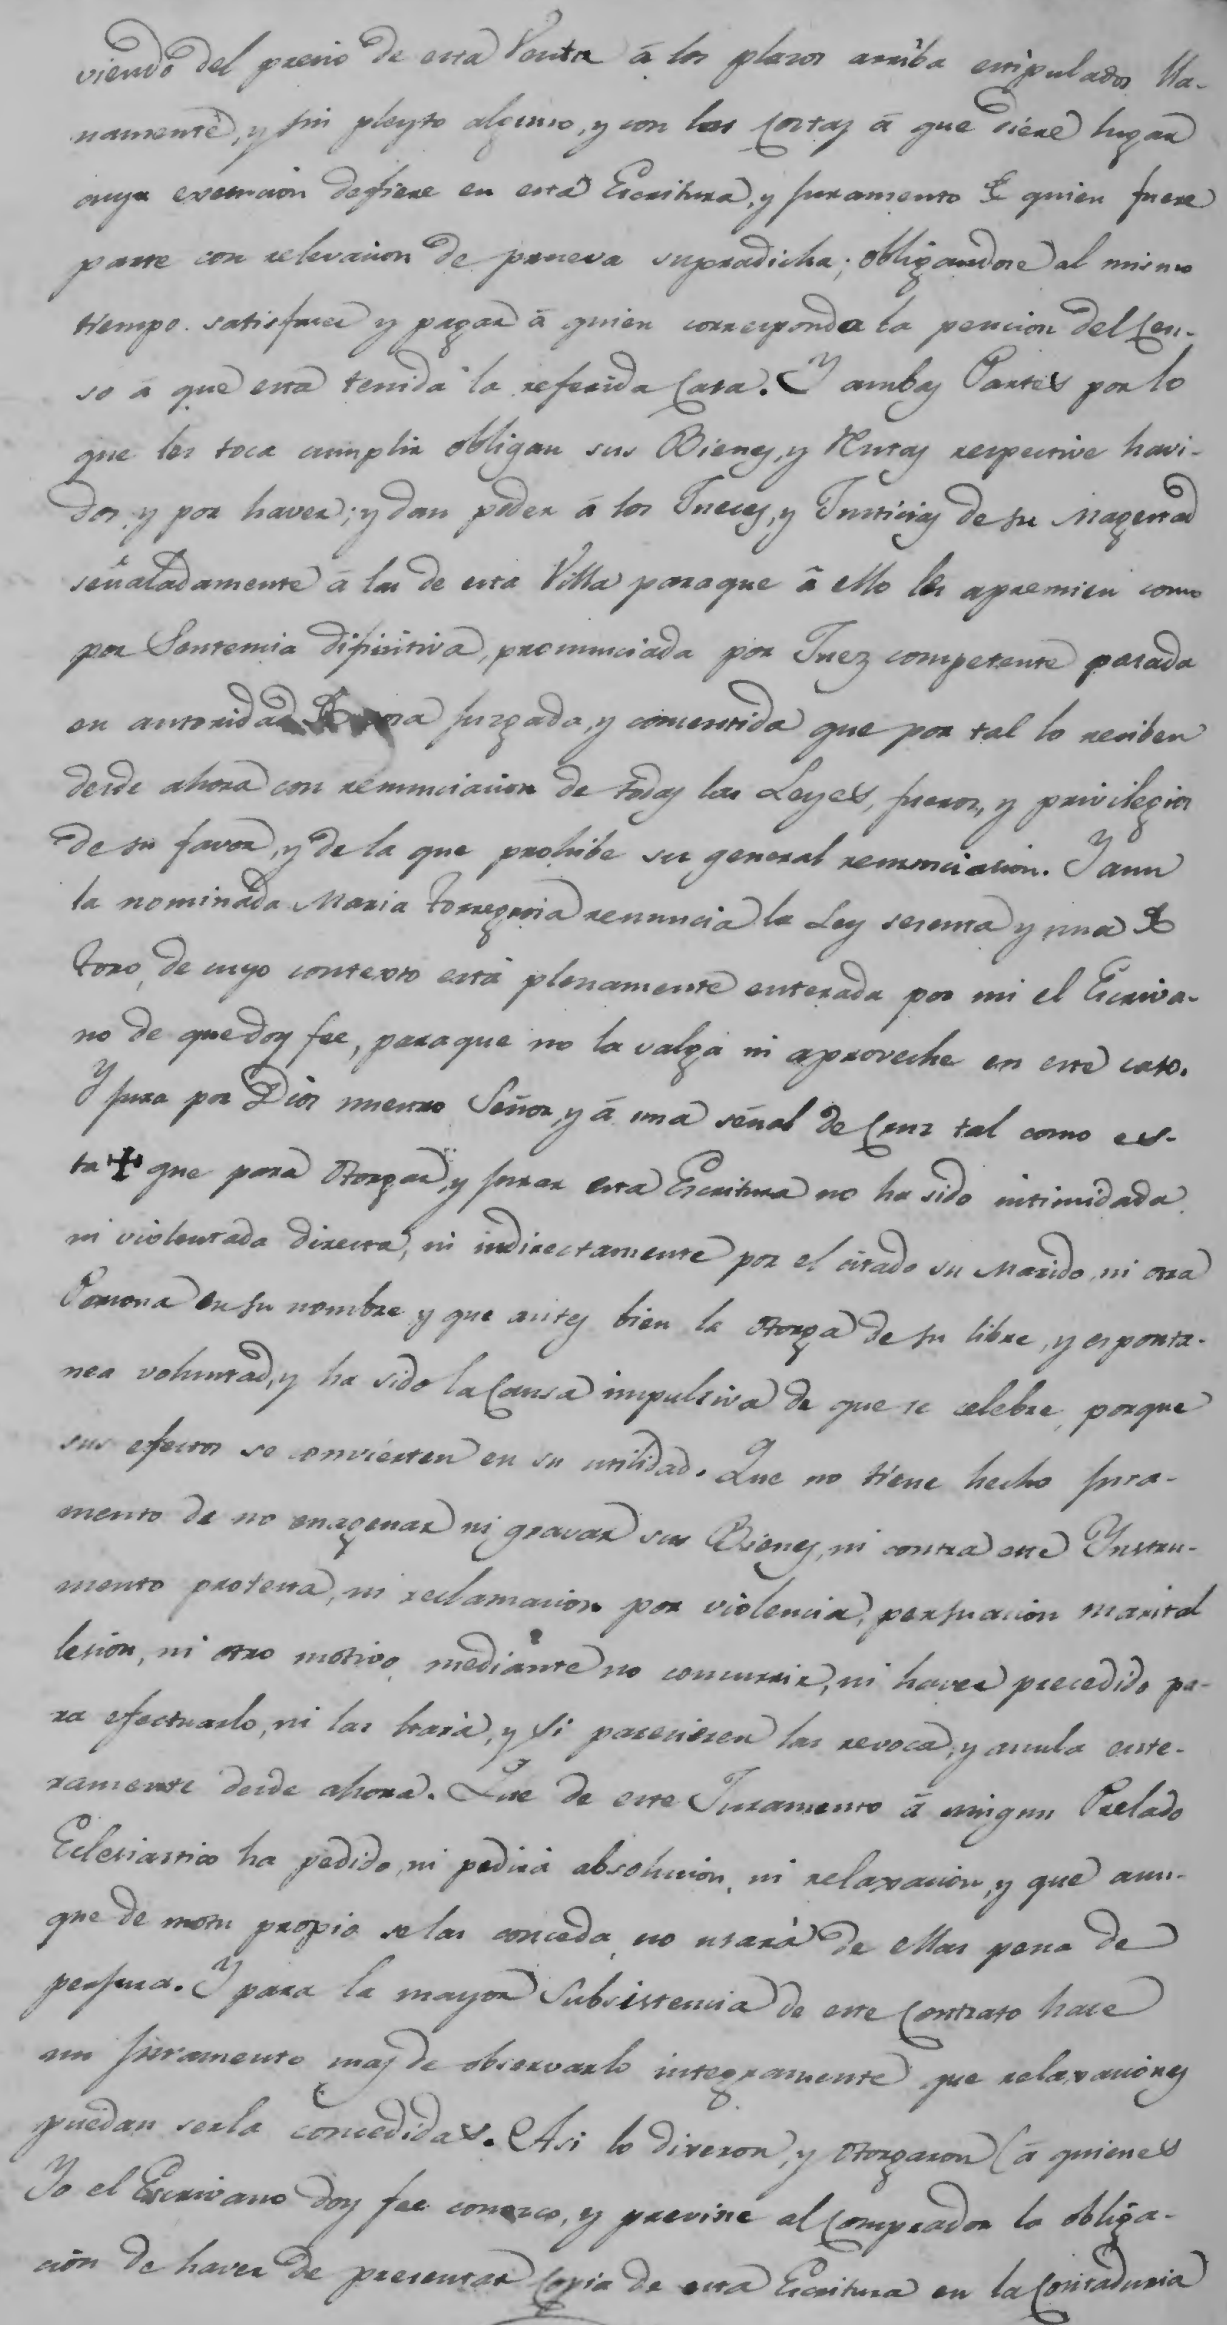 viendo del precio de esta Venta á los plazos arriba estipulados lla-
namente, y sin pleyto alguno, y con las Costas á que diere lugar
cuya execucion defiere en esta Escritura, y juramento de quien fuere
parte con relevacion de prueva supradicha; obligandose al mismo
tiempo satisfacer y pagar á quien corresponda la pencion del Cen-
so á que esta tenida la referida Casa. Y ambas Partes por lo
que les toca cumplir obligan sus Bienes, y Rentas respective havi-
dos, y por haver; y dan poder á los Jueces, y Justicias de su Magestad
señaladamente á las de esta Villa paraque á ello les apremien como
por Sentencia difinitiva, pronunciada por Juez competente pasada
en autoridad de cosa juzgada, y consentida que por tal lo reciben
desde ahora con renunciacion de todas las Leyes, fueros, y privilegios
de su favor, y de la que prohibe su general renunciacion. Y aun
la nominada Maria Torregrosa renuncia la Ley sesenta y una de
Toro, de cuyo contexto está plenamente enterada por mi el Escriva-
no de que doy fee, paraque no la valga ni aproveche en este caso.
Y jura por Dios nuestro Señor, y á una señal de Cruz tal como es-
ta ✝ que para otorgar, y jurar esta Escritura no ha sido intimidada
ni violentada directa, ni indirectamente por el citado su Marido, ni otra
Persona en su nombre y que antes bien la otorga de su libre, y esponta-
nea voluntad, y ha sido la Causa impulsiva de que se celebre, porque
sus efectos se convierten en su utilidad. Que no tiene hecho jura-
mento de no enagenar ni gravar sus Bienes, ni contra este Ynstru-
mento protesta, ni reclamacion por violencia, persuacion marital
lesion, ni otro motivo, mediante no concurrir, ni haver precedido pa-
ra efectuarlo, ni las hará, y si parecieren las revoca, y anula ente-
ramente desde ahora. Que de este Juramento á ningun Prelado
Eclesiastico ha pedido, ni pedirá absolucion, ni relaxacion, y que aun-
que de motu propio se las conceda, no usará de ellas pena de
perjura. Y para la mayor subsistencia de este Contrato hace
un juramento mas de observarlo integramente que relaxaciones
puedan serla concedidas. Asi lo dixeron, y otorgaron (á quienes
Yo el Escrivano doy fee conosco, y previne al Comprador la obliga-
cion de haver de presentar Copia de esta Escritura en la Contaduria